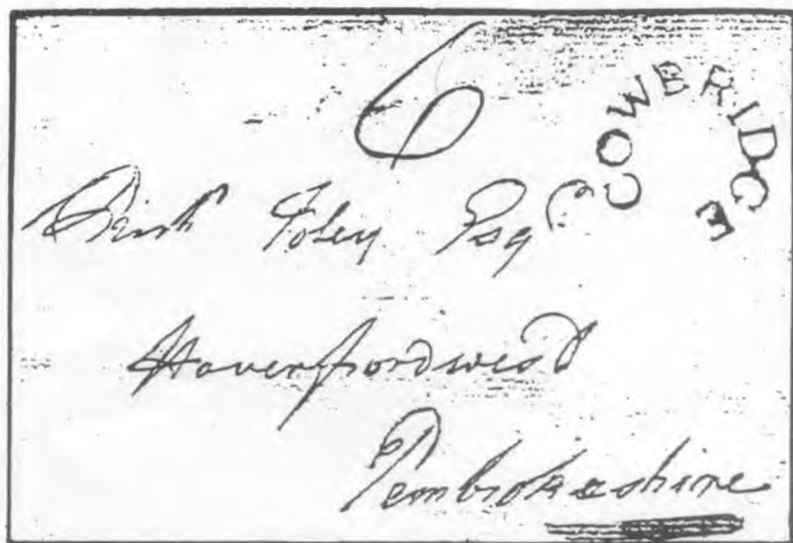 6
COWERIDCE
Richd Foley Esqr
Haverfordwest
Pembrokeshire